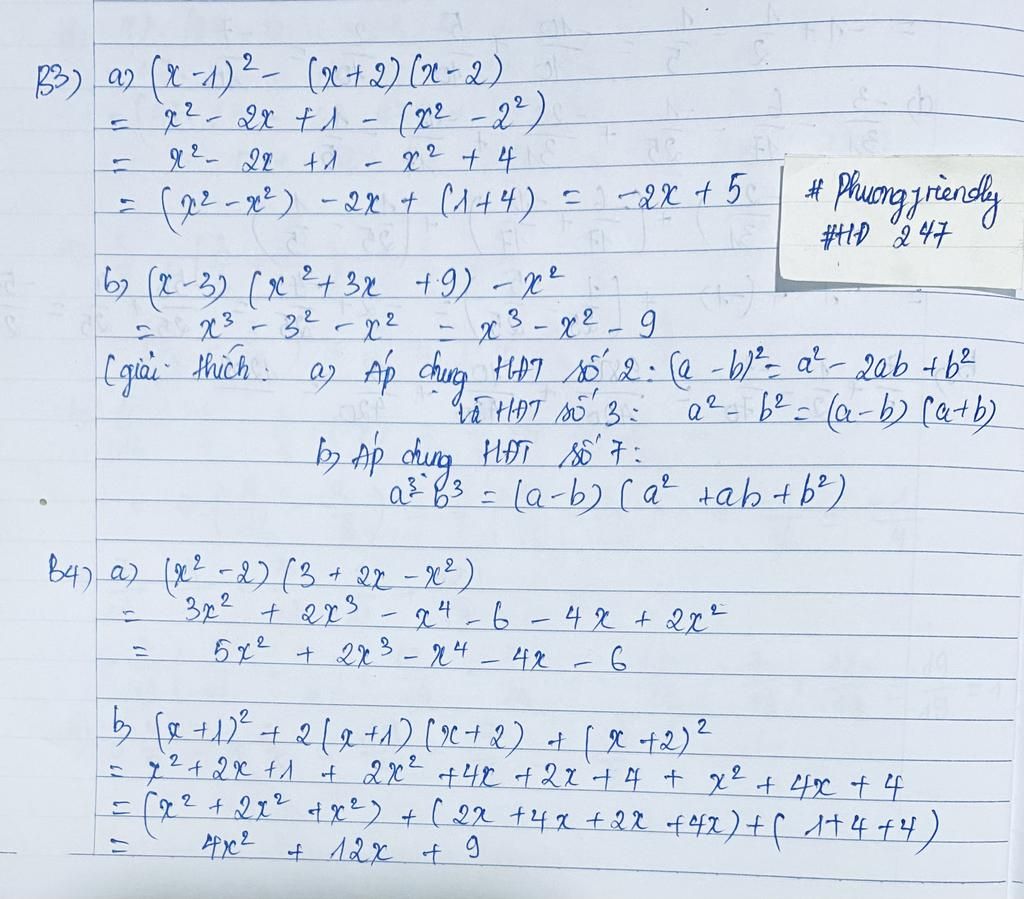 B3) a) (x-1)² - (x+2)(x-2)
= x² - 2x + 1 - (x² - 2²)
= x² - 2x + 1 - x² + 4
= (x² - x²) - 2x + (1+4) = -2x + 5
# Phuongfriendly
#HD 247
b) (x-3) (x² + 3x + 9) - x²
= x³ - 3² - x² = x³ - x² - 9
(giải thích: a) Áp dụng HĐT số 2: (a - b)² = a² - 2ab + b²
và HĐT số 3: a² - b² = (a-b) (a+b)
b) Áp dụng HĐT số 7:
a³ - b³ = (a-b) (a² + ab + b²)
B4) a) (x² - 2) (3 + 2x - x²)
= 3x² + 2x³ - x⁴ - 6 - 4x + 2x²
= 5x² + 2x³ - x⁴ - 4x - 6
b) (x+1)² + 2(x+1) (x+2) + (x+2)²
= x² + 2x + 1 + 2x² + 4x + 2x + 4 + x² + 4x + 4
= (x² + 2x² + x²) + (2x + 4x + 2x + 4x) + (1 + 4 + 4)
= 4x² + 12x + 9